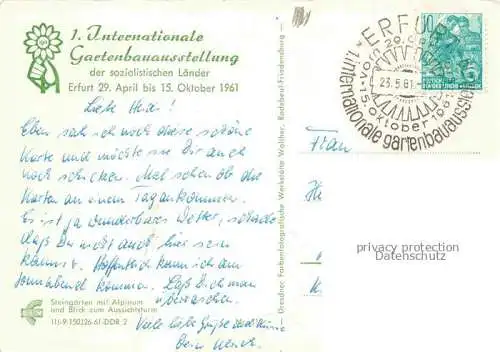 1. Internationale
Gartenbauausstellung
der sozialistischen Länder
Erfurt 29. April bis 15. Oktober 1961
Liebe Heidi!
Eben sah ich noch diese schöne
Karte und möchte sie Dir auch
noch schicken. Mal sehen ob die
Karten an einem Tag ankommen.
Es ist ja wunderbares Wetter, schade
daß Du nicht auch hier sein
kannst. Hoffentlich kann ich am
Sonnabend kommen. Laß Dich man
überraschen.
Viele liebe Grüße
Dein
Steingarten mit Alpinum
und Blick zum Aussichtsturm
111-9-150226-61-DDR 2
Dresdner Farbenfotografische Werkstätte Walther, Radebeul-Friedensburg
ERFURT
23.5.61
1. internationale gartenbauausstellung
15. oktober 1961
10
Frau
privacy protection
Datenschutz